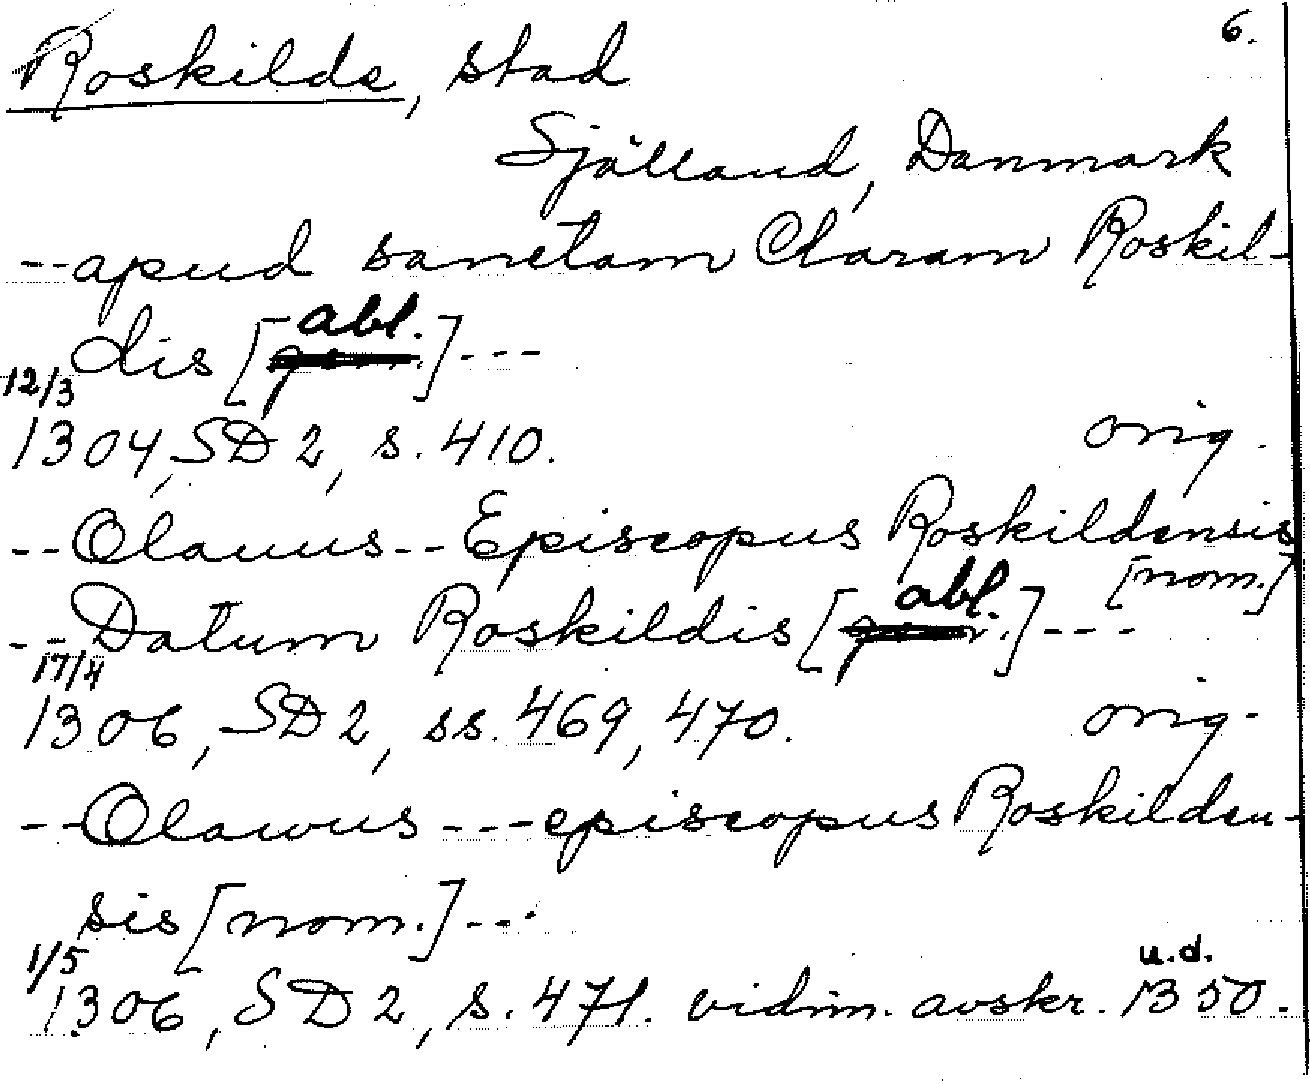 6.
Roskilde, stad
Själland, Danmark
--apud sanctam Claram Roskil-
dis [abl.]---
12/3
1304, SD 2, s. 410. orig.
--Olauus--Episcopus Roskildensis
[nom.]
--Datum Roskildis [abl.]---
17/4
1306, SD 2, ss. 469, 470. orig.
--Olawus---episcopus Roskilden-
sis [nom.]---
1/5 u.d.
1306, SD 2, s. 471. vidim. avskr. 1350.